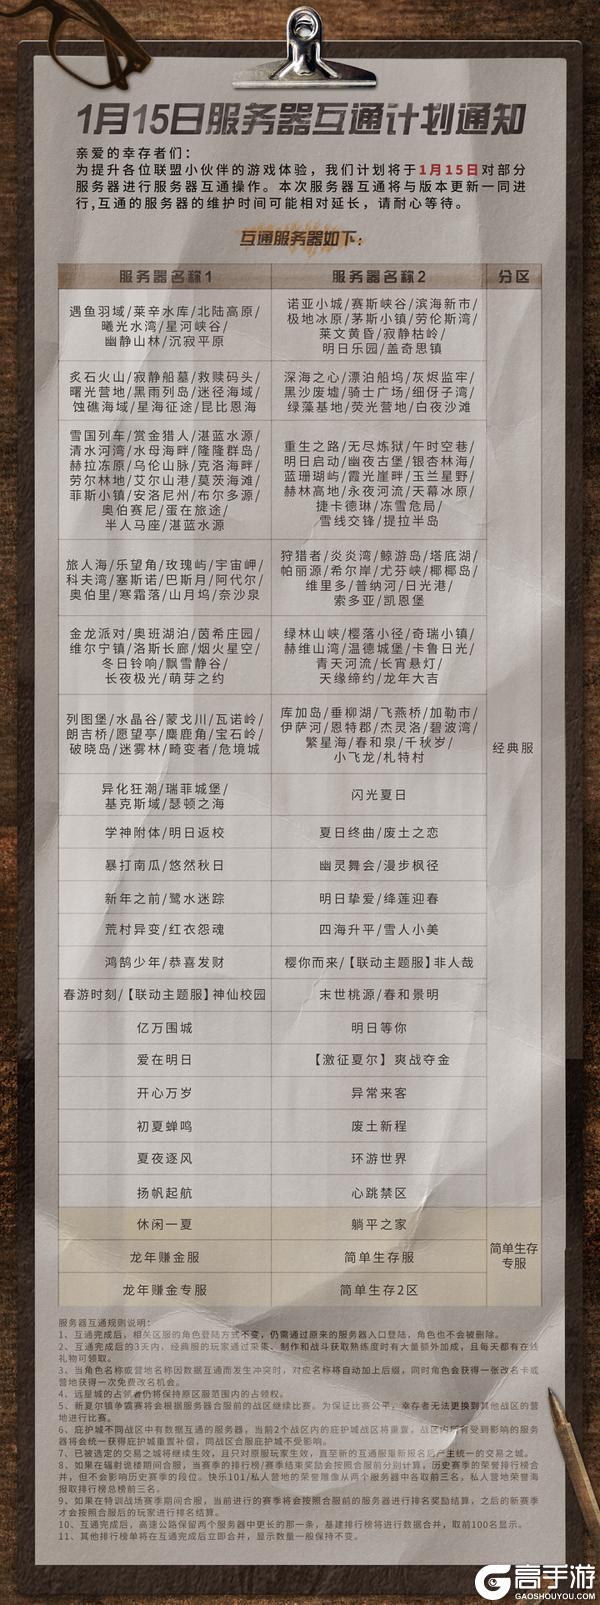 1月15日服务器互通计划通知
亲爱的幸存者们：
为提升各位联盟小伙伴的游戏体验，我们计划将于1月15日对部分
服务器进行服务器互通操作。本次服务器互通将与版本更新一同进
行,互通的服务器的维护时间可能相对延长，请耐心等待。
互通服务器如下：
服务器名称1
服务器名称2
分区
遇鱼羽域/莱辛水库/北陆高原/
曦光水湾/星河峡谷/
幽静山林/沉寂平原
诺亚小城/赛斯峡谷/滨海新市/
极地冰原/茅斯小镇/劳伦斯湾/
莱文黄昏/寂静枯岭/
明日乐园/盖奇思镇
炙石火山/寂静船墓/救赎码头/
曙光营地/黑雨列岛/迷径海域/
蚀礁海域/星海征途/昆比恩海
深海之心/漂泊船坞/灰烬监牢/
黑沙废墟/骑士广场/细伢子湾/
绿藻基地/荧光营地/白夜沙滩
雪国列车/赏金猎人/湛蓝水源/
清水河湾/水母海畔/隆隆群岛/
赫拉冻原/乌伦山脉/克洛海畔/
劳尔林地/艾尔山港/莫茨海滩/
菲斯小镇/安洛尼州/布尔多源/
奥伯赛尼/蛋在旅途/
半人马座/湛蓝水源
重生之路/无尽炼狱/午时空巷/
明日启动/幽夜古堡/银杏林海/
蓝珊瑚屿/霞光崖畔/玉兰星野/
赫林高地/永夜河流/天幕冰原/
捷卡德琳/冻雪危局/
雪线交锋/提拉半岛
旅人海/乐望角/玫瑰屿/宇宙岬/
科夫湾/塞斯诺/巴斯月/阿代尔/
奥伯里/寒霜落/山月坞/奈沙泉
狩猎者/炎炎湾/鲸游岛/塔底湖/
帕丽诺/希尔岸/尤芬峡/椰椰岛/
维里多/普纳河/日光港/
索多亚/凯恩堡
金龙派对/奥班湖泊/茵希庄园/
维尔宁镇/洛斯长廊/烟火星空/
冬日铃响/飘雪静谷/
长夜极光/萌芽之约
绿林山峡/樱落小径/奇瑞小镇/
赫维山湾/温德城堡/卡鲁日光/
青天河流/长宵悬灯/
天缘缔约/龙年大吉
列图堡/水晶谷/蒙戈川/瓦诺岭/
朗吉桥/愿望亭/麋鹿角/宝石岭/
破晓岛/迷雾林/畸变者/危境城
库加岛/垂柳湖/飞燕桥/加勒市/
伊萨河/恩特郡/杰灵洛/碧波湾/
繁星海/春和泉/千秋岁/
小飞龙/札特村
经典服
异化狂潮/瑞菲城堡/
基克斯域/瑟顿之海
闪光夏日
学神附体/明日返校
夏日终曲/废土之恋
暴打南瓜/悠然秋日
幽灵舞会/漫步枫径
新年之前/鹭水迷踪
明日挚爱/绛莲迎春
荒村异变/红衣怨魂
四海升平/雪人小美
鸿鹄少年/恭喜发财
樱你而来/【联动主题服】非人哉
春游时刻/【联动主题服】神仙校园
末世桃源/春和景明
亿万围城
明日等你
爱在明日
【激征夏尔】爽战夺金
开心万岁
异常来客
初夏蝉鸣
废土新程
夏夜逐风
环游世界
扬帆起航
心跳禁区
休闲一夏
躺平之家
龙年赚金服
简单生存服
简单生存
专服
龙年赚金专服
简单生存2区
服务器互通规则说明：
1、互通完成后，相关区服的角色登陆方式不变，仍需通过原来的服务器入口登陆，角色也不会被删除。
2、互通完成后的3天内，经典服的玩家通过采集、制作和战斗获取熟练度时有大量额外加成，且每天都有在线
礼物可领取。
3、当角色名称或营地名称因数据互通而发生冲突时，对应名称将自动加上后缀，同时角色会获得一张改名卡或
营地获得一次免费改名机会。
4、远星城的占领者仍将保持原区服范围内的占领权。
5、新夏尔镇争霸赛将会根据服务器合服前的战区继续比赛。为保证比赛公平，幸存者无法更换到其他战区的营
地进行比赛。
6、庇护城不同战区中有数据互通的服务器，当前2个战区内的庇护城战区将重置，战区内所有受到影响的服务
器将会统一获得庇护城重置补偿，同战区合服庇护城不受影响。
7、已被选定的交易之城将继续生效，且只对原服玩家生效，直至新的互通服重新报名后产生统一的交易之城。
8、如果在辐射诡楼期间合服，当赛季的排行榜/赛季结束奖励会按照合服前分别计算，历史赛季的荣誉排行榜合
并，但不会影响历史赛季的段位。快乐101/私人营地的荣誉雕像从两个服务器中各取前三名，私人营地荣誉海
报取排行榜总榜前三名。
9、如果在特训战场赛季期间合服，当前进行的赛季将会按照合服前的服务器进行排名奖励结算，之后的新赛季
才会按照合服后的玩家进行排名结算。
10、互通完成后，高速公路保留两个服务器中更长的那一条，基建排行榜将进行数据合并，取前100名显示。
11、其他排行榜单将在互通完成后立即合并，显示数量一般保持不变。
高手游
GAOSHOUYOU.COM